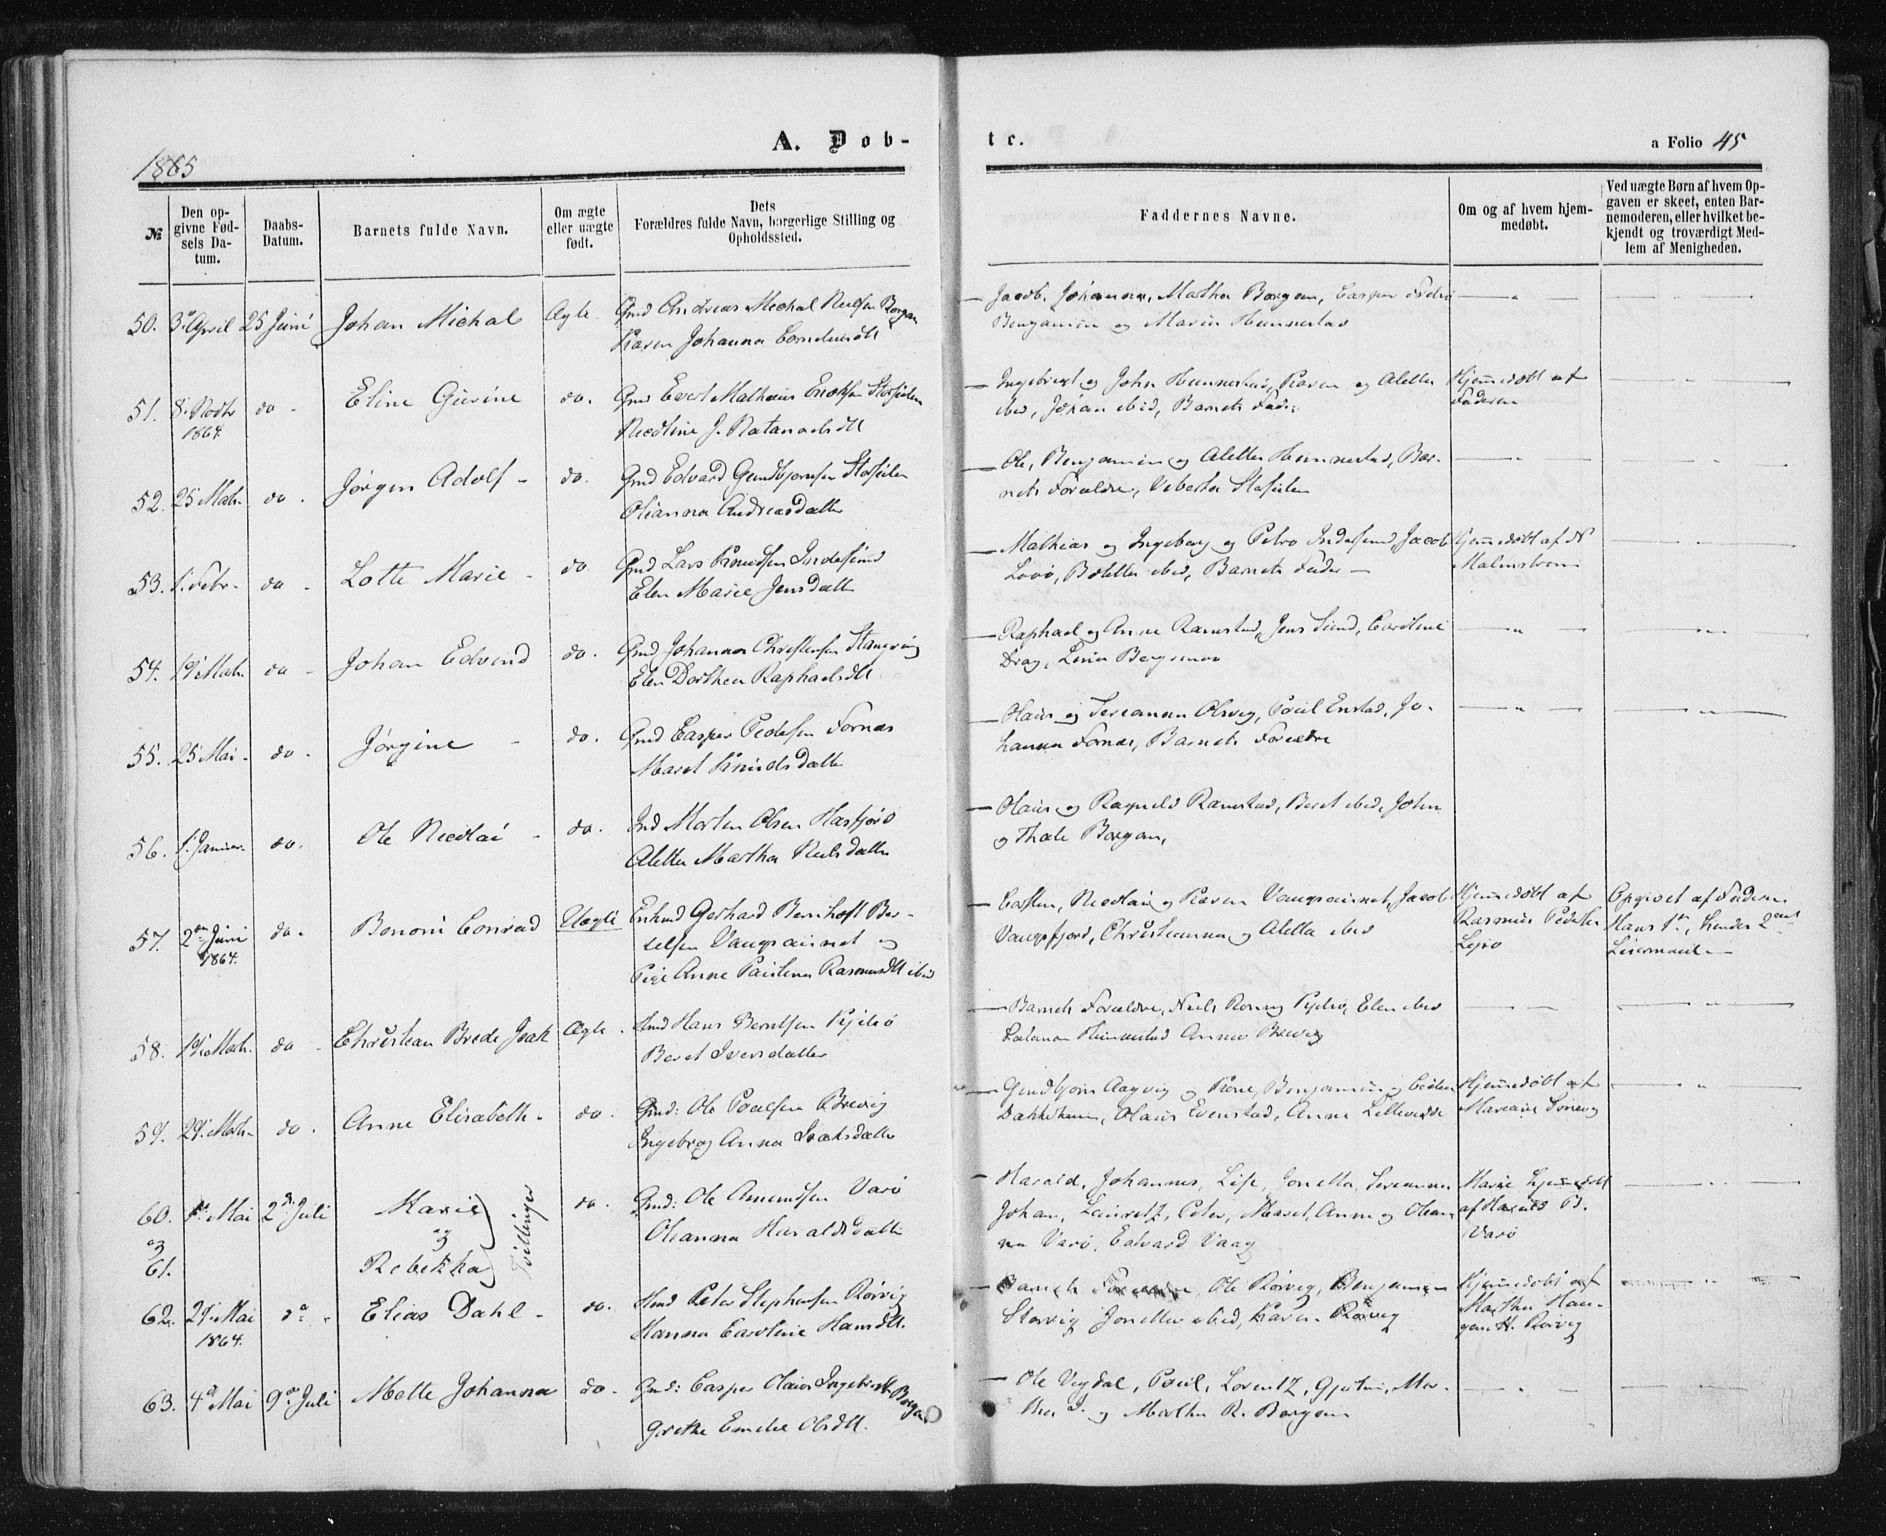 1865
A. Døb-
te.
a Folio 45
№
Den op-
givne Fød-
sels Da-
tum.
Daabs-
Datum.
Barnets fulde Navn.
Om ægte
eller uægte
født.
Dets
Forældres fulde Navn, borgerlige Stilling og
Opholdssted.
Faddernes Navne.
Om og af hvem hjem-
medøbt.
Ved uægte Børn af hvem Op-
gaven er skeet, enten Bar-
nemoderen, eller hvilket be-
kjendt og troværdigt Med-
lem af Menigheden.
50. 3 April 25 Juni Johan Michal Ægte Gmd Andreas Michal Nielsen Borgan
Karen Johanna Corneliusdtt
Jacob, Johanna, Martha Borgan, Casper
Benjamin og Maren Hunnestad
51. 8 Novbr 1864 do - Eline Gurine do. Gmd Evert Mathias Ericksen Storseilen
Nicoline J. Natanaelsdtt
Ingebrigt og John Hunnestad, Karen og Aletta
ibid, Johan ibid, Barnets Fader
Hjemmedøbt af
Faderen
52. 25 Mats do - Jørgen Adolf - do. Gmd Edvard Gundbjørnsen Storseilen
Olianna Andreasdatter
Ole, Benjamin og Aletta Hunnestad, Bar-
nets Forældre, Storseilen
53. 1 Febr - do - Lotte Marie - do Gmd Lars Knudsen Indresund
Elen Marie Jensdatter
Mathias og Ingeborg og Petra Indresund, Jacob
Lovø, ibid, Barnets Fader -
Hjemmedøbt af
Malmstrøm
54. 19 Mats do - Johan Edvind do. Gmd Johannes Christensen Stangvig
Elen Dorthea Raphaelsdtt.
Raphael og Anne Ramstad, Jens Sund, Caroline
Drag, Lina Bergsnov
55. 25 Mai - do - Jørgine - do. Gmd Casper Pedersen Fornæs
Maret Knudsdatter
Olaus og Sereanna Olsvig, Poul Enstad, Jo-
hanna Fornæs, Barnets Forældre
56. 1 Januar do. Ole Nicolai - do. Ind Morten Olsen Harfjord
Aletta Martha Nielsdatter
Olaus og Ragnild Ramstad, Beret ibid, John
og Thale Borgan,
57. 2den Juni 1864. do - Bononi Conrad Uægte Enkmd Gerhard Bernhoft Ber-
telsen Vangsaunet og
Pige Anne Paulina Rasmusdtt ibid
Carsten, Nicolai og Karen Vangsaunet, Jacob
Vangsfjord, Christianna og Aletta ibid
Hjemmedøbt af
Rasmus Pedersen
Opgivet af Faderen
Hans 1ste, hendes 2det
Leiermaal
58. 19 Mats do - Christian Brede Isak Ægte. Hans Berntsen
Beret Iversdatter
Barnets Forældre, Niels Elen ibid
Hunnestad Anna Brevig
59. 29 Mats do. Anne Elisabeth - do. Gmd: Ole Poulsen Brevig
Ingeborg Anna Isaksdatter
Gundbjørn Aagvig og Benjamin og
Olaus Evenstad, Anna
Hjemmedøbt af
60. 1 Mai 2den Juli Marie do. Gmd: Ole Amundsen Varø
og og Tvillinger
61. Rebekka Oleanna Haraldsdatter
Harald, Johannes, Lise, Jonetta, Sereanna
Johan, Lauretz, Peter, Maret, Anne og Olean-
na Varø, Edvard Vaag
Marie hjemmedøbt
af Harald B.
Varø
62. 29 Mai 1864. do - Elias Dahl - do. Peter Stephansen Rørvig
Hanna Caroline Hansdtt.
Barnets Forældre, Ole Rørvig, Benjamin
Storvig Jonetta ibid, Karen Rørvig
Hjemmedøbt af
Martha Han-
Rørvig
63. 4de Mai 9de Juli Mette Johanna do - Gmd: Casper Olaus Ingebrigts. Borgan
Grethe Emelie Olsdtt.
Ole Vegdal, Poul, Lorentz, Mar-
og Martha R. Borgan